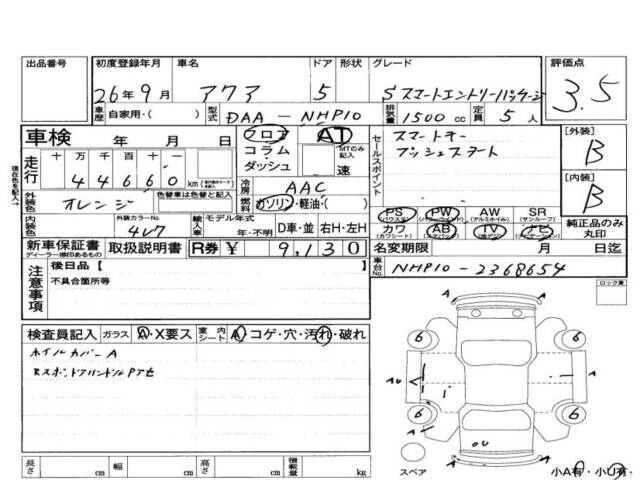 出品番号 初度登録年月 車名 ドア 形状 グレード 評価点
26年9月 アクア 5 Sスマートエントリーパッケージ 3.5
車歴 自家用・( ) 型式 DAA-NHP10 排気量 1500cc 定員 5人
車検 年 月 日 フロア AT セールスポイント スマートキー [外装]
コラム MTのみ記入 プッシュスタート B
走行 十万千百十一 ダッシュ 速
44660km
現在色を記入→
外装色 オレンジ 色替車は色替と記入 冷房 AAC [内装]
燃料 ガソリン・軽油・( ) B
内装色 外装カラーNo. 4R7 輸入車 モデル年式 年・不明 D車・並 右H・左H
PS (パワステ) PW (パワーウィンド) AW (アルミホイル) SR (サンルーフ)
カワ (カワシート) AB (エアバッグ) TV (地デジ) ナビ (ナビゲーション) 純正品のみ丸印
新車保証書 ディーラー捺印あるもの 取扱説明書 R券 ¥ 9,130 名変期限 月 日迄
注意事項 後日品【 車台No. NHP10-2368654
不具合箇所等 ロック車
検査員記入 ガラス A・X要ス 室内シート A コゲ・穴・汚れ・破れ
ホイルカバーA
A
6 6
AU A
6 6
A A
OU
スペア 小A有・小U有・
長さ cm 幅 cm 高さ cm 積載量 kg